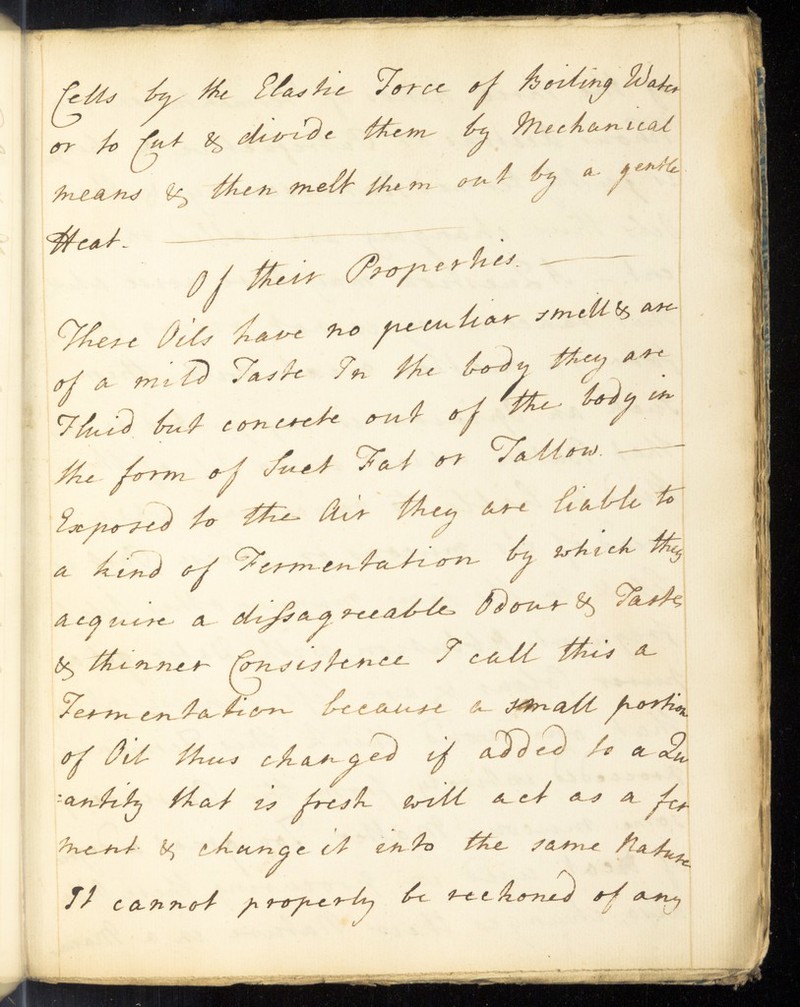 Cells by the Elastic Force of Boiling Water
or to Cut & divide them by Mechanical
means & then melt them out by a gentle
Heat. —
Of their Properties. —
These Oils have no peculiar smell & are
of a mild Taste In the body they are
Fluid but concrete out of the body in
the form of Suet Fat or Tallow. —
Exposed to the Air they are liable to
a kind of Fermentation by which they
acquire a dissagreeable Odour & Taste
& thinner Consistence I call this a
Fermentation because a small portion
of Oil thus changed if added to a Qu
:antity that is fresh will act as a fer
ment & change it into the same Nature
It cannot properly be reckoned of any